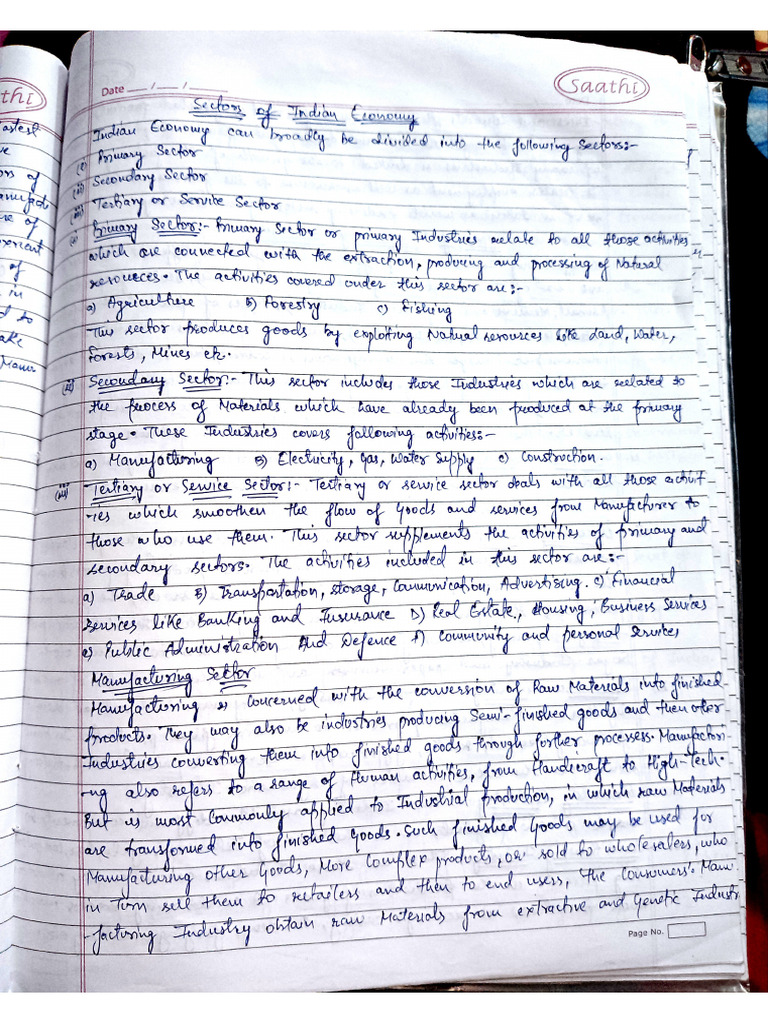 thi
Date __/__/__
Saathi
Sectors of Indian Economy
Indian Economy can broadly be divided into the following Sectors:-
(i) Primary Sector
(ii) Secondary Sector
(iii) Tertiary or Service Sector
(i) Primary Sector:- Primary Sector or primary Industries relate to all those activities
which are connected with the extraction, producing and processing of Natural
resources. The activities covered under this sector are:-
a) Agriculture b) Forestry c) Fishing
This sector produces goods by exploiting Natural resources like Land, Water,
Forests, Mines etc.
(ii) Secondary Sector:- This sector includes those Industries which are related to
the process of Materials which have already been produced at the primary
stage. These Industries covers following activities:-
a) Manufacturing B) Electricity, Gas, Water Supply c) Construction.
(iii) Tertiary or Service Sector:- Tertiary or service sector deals with all those activit
-ies which smoothen the flow of Goods and services from Manufacturer to
those who use them. This sector supplements the activities of primary and
secondary sectors. The activities included in this sector are:-
a) Trade B) Transportation, storage, Communication, Advertising. c) Financial
services like Banking and Insurance D) Real Estate, Housing, Business Services
e) Public Administration And Defence f) Community and personal services
Manufacturing Sector
Manufacturing is concerned with the conversion of Raw Materials into finished
Products. They may also be industries producing Semi-finished goods and then other
Industries converting them into finished goods through further processess. Manufacturi
-ng also refers to a range of Human activities, from Handicraft to High-Tech.
But is most Commonly applied to Industrial production, in which raw Materials
are transformed into finished Goods. Such finished Goods may be used for
Manufacturing other Goods, More Complex products, or sold to wholesalers, who
in turn sell them to retailers and then to end users, the Consumers. Manu
-facturing Industry obtain raw Materials from extractive and Genetic Industri
Page No.